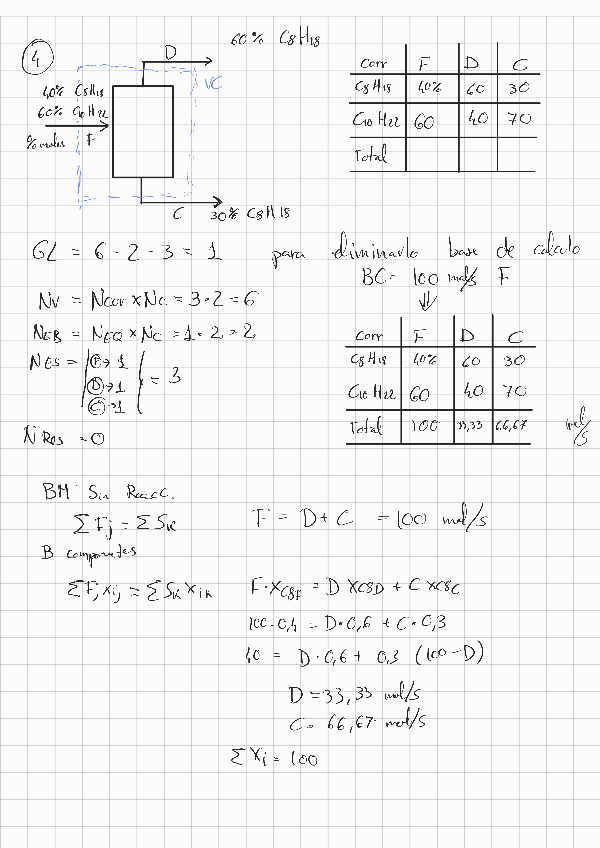 4
60% C8H18
D
VC
40% C8H18
60% C10H22
% moles F
C 30% C8H18
Corr F D C
C8H18 40% 60 30
C10H22 60 40 70
Total
GL = 6 - 2 - 3 = 1 para eliminarlo base de calculo
BC = 100 mol/s F
NV = Ncorr x Nc = 3 · 2 = 6
NEB = NEQ x Nc = 1 · 2 = 2
NES = F → 1
D → 1 = 3
C → 1
N Res = 0
Corr F D C
C8H18 40% 60 30
C10H22 60 40 70
Total 100 33,33 66,67 mol/s
BM Sin Reacc.
Σ Fj = Σ Sk F = D + C = 100 mol/s
B componentes
Σ Fj xij = Σ Sk xik F · xC8F = D xC8D + C xC8C
100 · 0,4 = D · 0,6 + C · 0,3
40 = D · 0,6 + 0,3 (100 - D)
D = 33,33 mol/s
C = 66,67 mol/s
Σ xi = 100